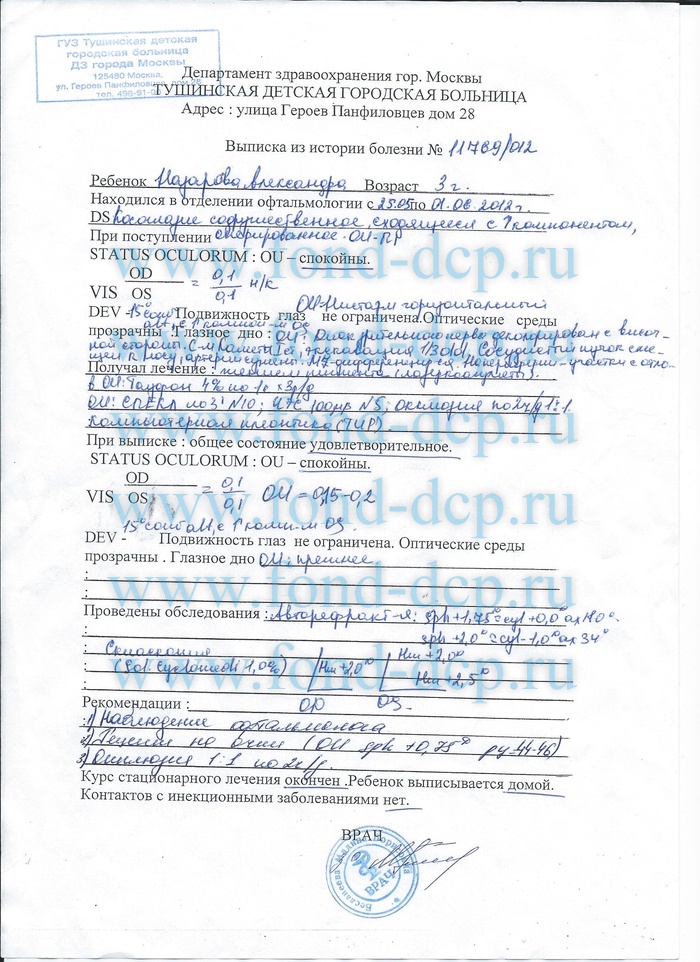 ГУЗ Тушинская детская
городская больница
ДЗ города Москвы
125480 Москва,
ул. Героев Панфиловцев, дом 28
тел. 496-91-0
Департамент здравоохранения гор. Москвы
ТУШИНСКАЯ ДЕТСКАЯ ГОРОДСКАЯ БОЛЬНИЦА
Адрес : улица Героев Панфиловцев дом 28
Выписка из истории болезни № 11769/012
Ребенок Назарова Александра Возраст 3 г.
Находился в отделении офтальмологии с 25.05 по 01.06.2012г.
DS Косоглазие содружественное, сходящееся с компонентом,
При поступлении оперированное. OU-
STATUS OCULORUM : OU – спокойны.
www.fond-dcp.ru
OD
VIS OS = 0,1 / 0,1 н/к
OU-Нистагм горизонтальный
DEV - 15° Подвижность глаз не ограничена.Оптические среды
прозрачны .Глазное дно : OU: Диск зрительного нерва с височ-
ной стороны.
Получал лечение :
в OU: Тауфон 4% по 1к х 3р/д
OU: N10; N5; Окклюзия по 2ч/д 1:1.
www.fond-dcp.ru
Компьютерная плеоптика
При выписке : общее состояние удовлетворительное.
STATUS OCULORUM : OU – спокойны.
OD
VIS OS = 0,1 / 0,1 OU = 0,15-0,2
www.fond-dcp.ru
15°
DEV - Подвижность глаз не ограничена. Оптические среды
прозрачны . Глазное дно OU: прежнее
www.fond-dcp.ru
Проведены обследования : Авторефракт-я: sph +1,75 cyl +0,0
sph +2,0 cyl -1,0 ax 34°
Скиаскопия
www.fond-dcp.ru
(Sol. Cyclomedi 1,0%) Hm +2,0 Hm +2,0
Hm +2,5
Рекомендации : OD OS
1) Наблюдение офтальмолога
2) Рецепт на очки (OU sph +0,75 РЦ-44-46)
3) Окклюзия 1:1 по 2ч/д
Курс стационарного лечения окончен .Ребенок выписывается домой.
Контактов с инекционными заболеваниями нет.
ВРАЧ
ВРАЧ